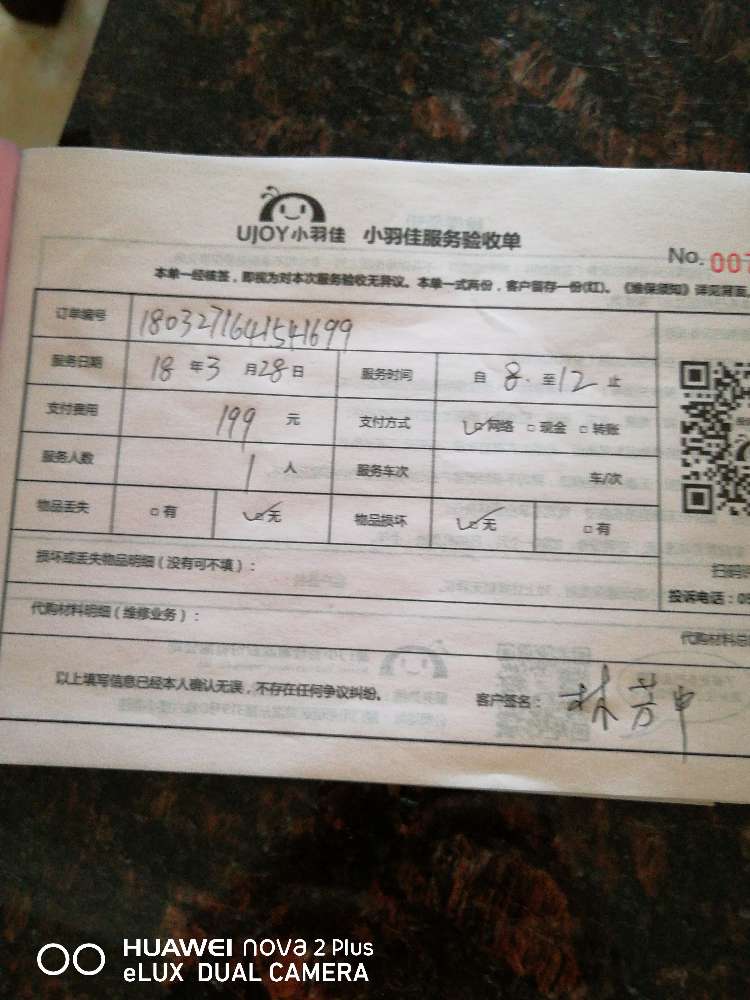 UJOY小羽佳 小羽佳服务验收单
No. 007
本单一经核签，即视为对本次服务验收无异议。本单一式两份，客户留存一份(红)。《维保须知》详见背面
订单编号 1803271641541699
服务日期 18 年 3 月 28 日 服务时间 自 8. 至 12 止
支付费用 199 元 支付方式 ☑网络 □现金 □转账
服务人数 1 人 服务车次 车/次
物品丢失 □有 ☑无 物品损坏 ☑无 □有
损坏或丢失物品明细（没有可不填）：
扫码
投诉电话：05
代购材料明细（维修业务）：
代购材料总
以上填写信息已经本人确认无误，不存在任何争议纠纷。 客户签名： 林芳中
HUAWEI nova 2 Plus
eLUX DUAL CAMERA